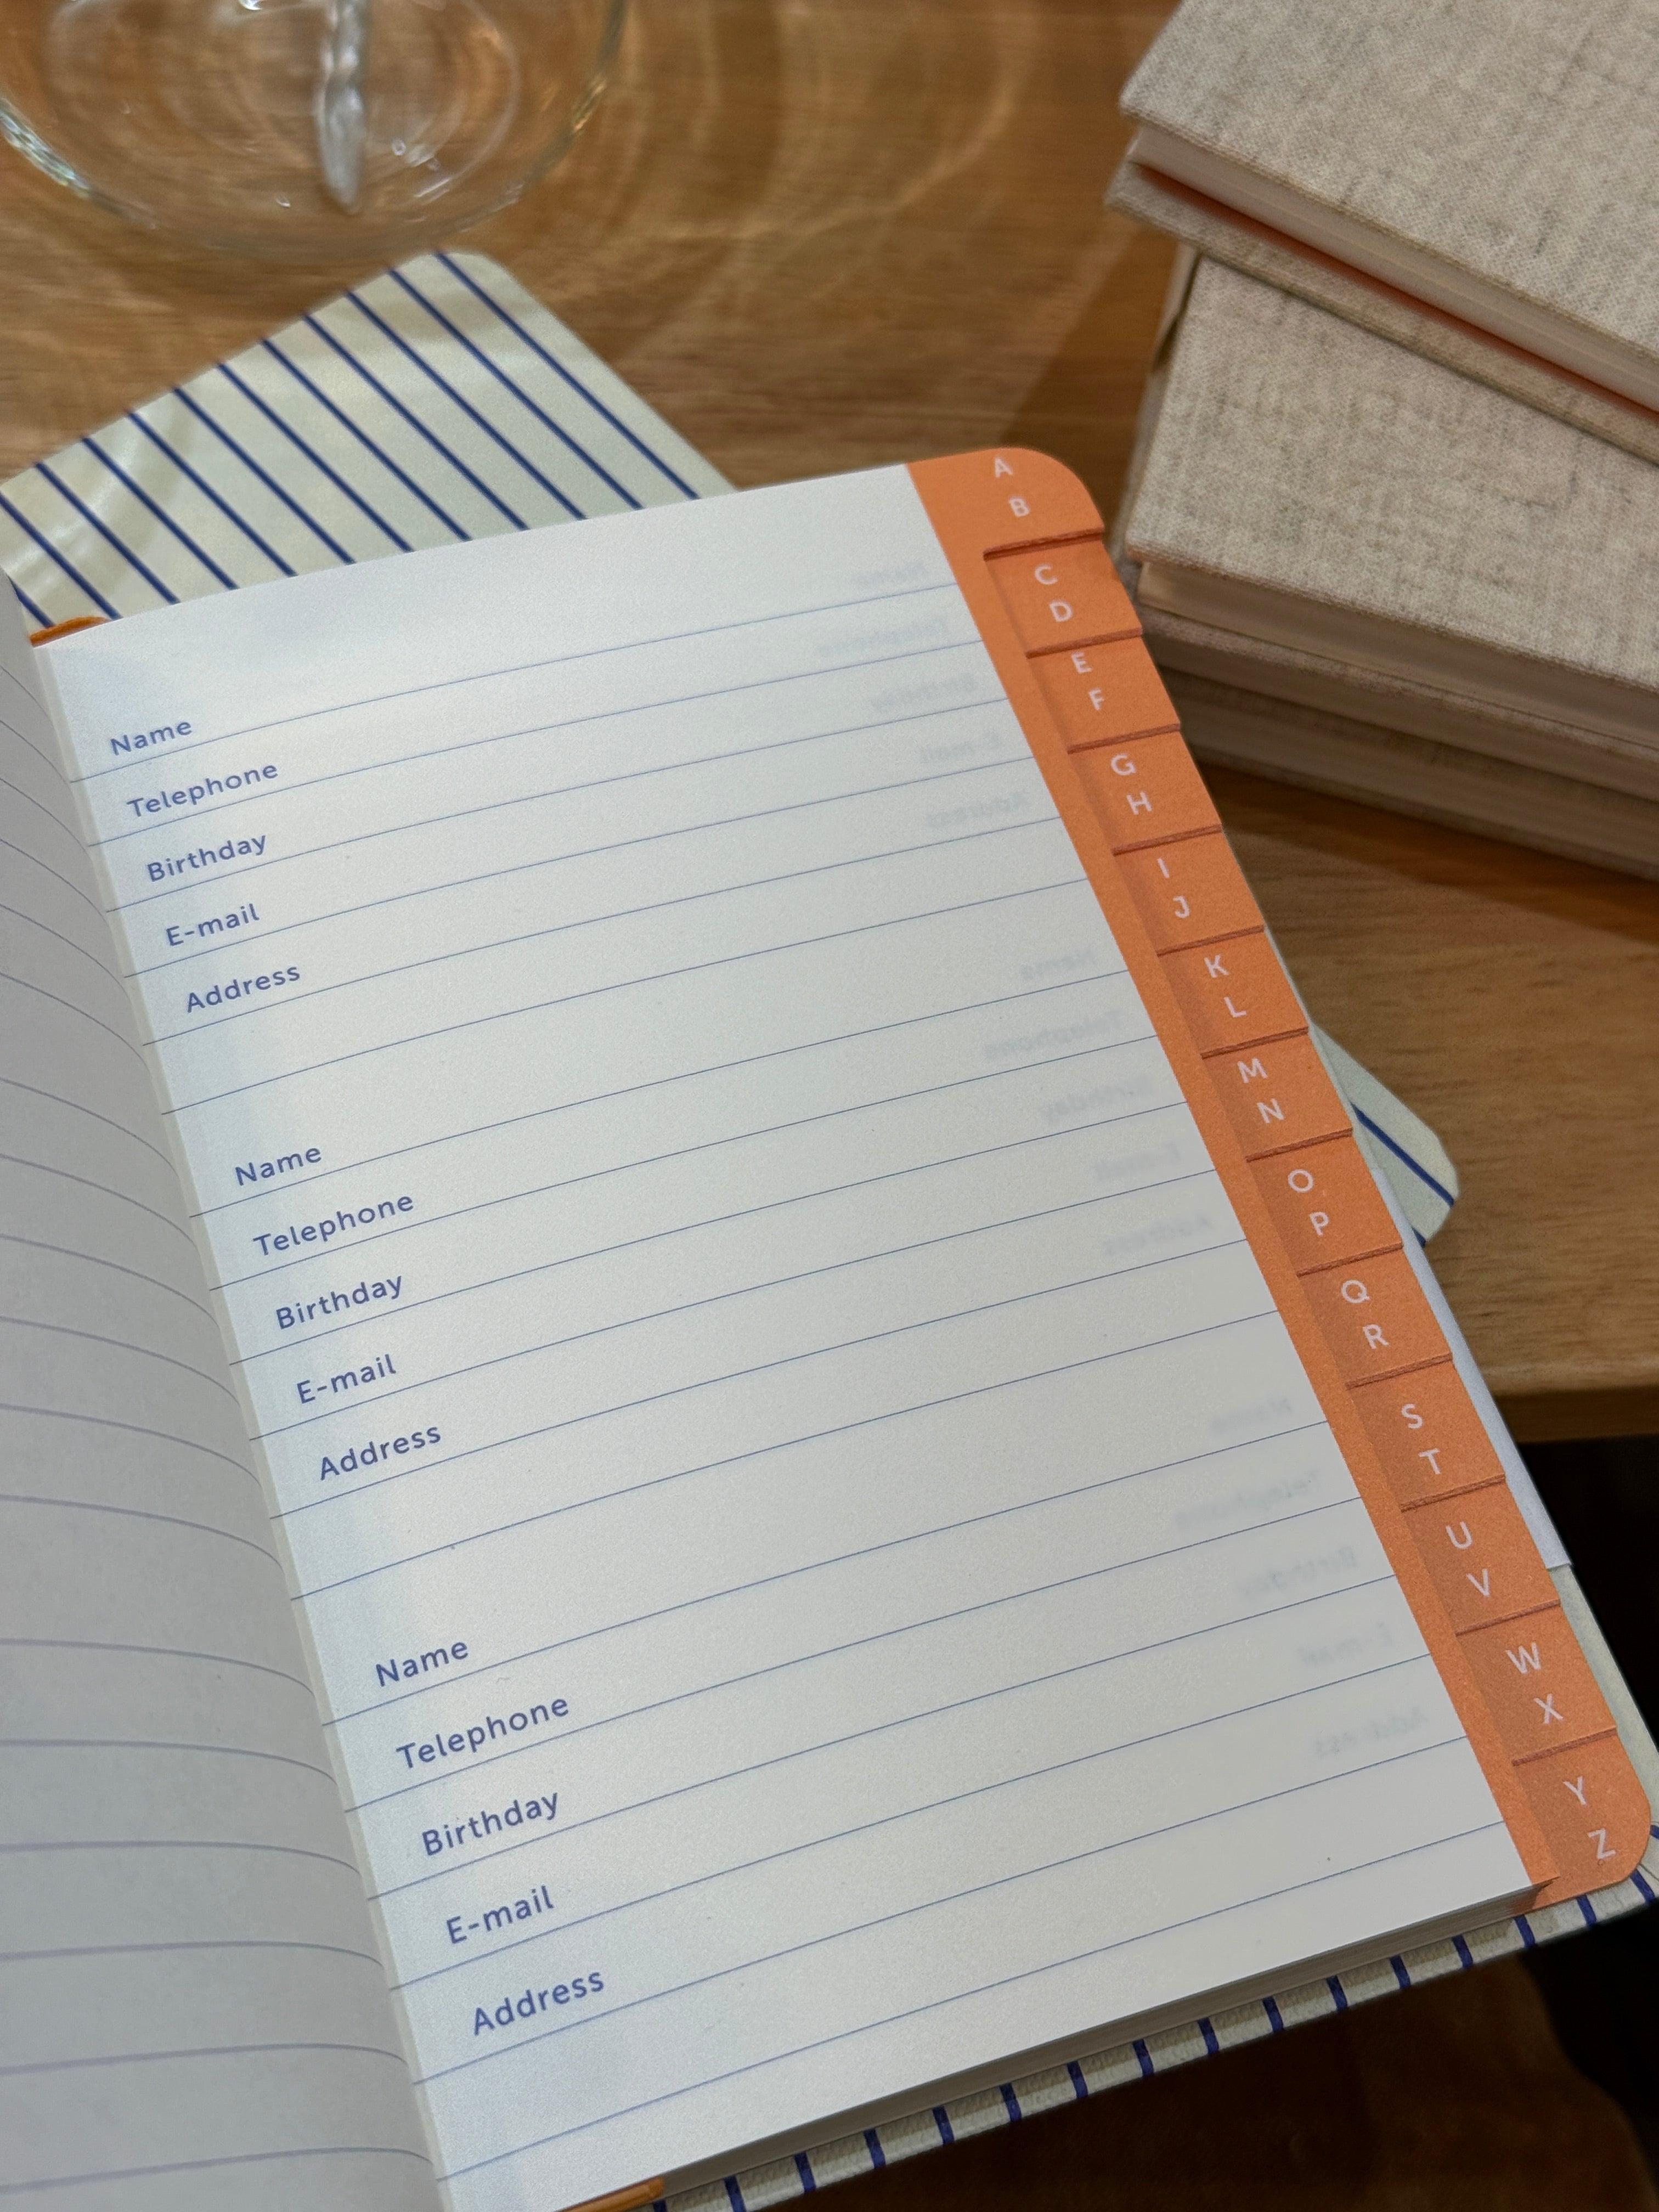 Name
Telephone
Birthday
E-mail
Address
Name
Telephone
Birthday
E-mail
Address
Name
Telephone
Birthday
E-mail
Address
A
B
C
D
E
F
G
H
I
J
K
L
M
N
O
P
Q
R
S
T
U
V
W
X
Y
Z